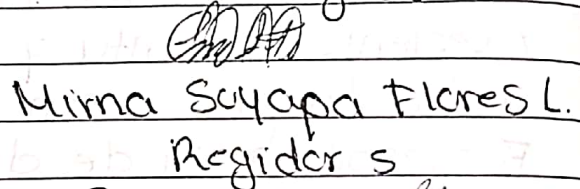 Mirna Suyapa Flores L.
Regidor 5